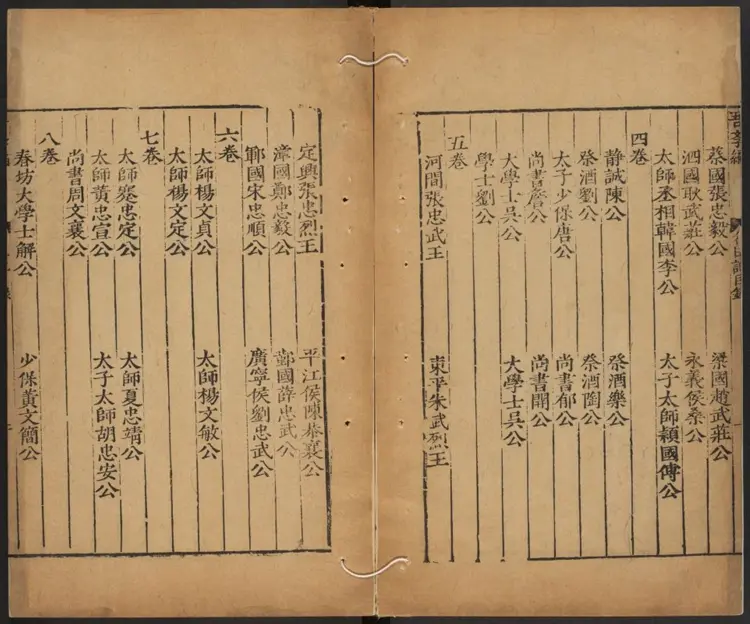 吾學編
蔡國張忠毅公 梁國趙武莊公
泗國耿武莊公 永義侯桑公
太師丞相韓國李公 太子太師穎國傅公
四卷
靜誠陳公 祭酒樂公
祭酒劉公 祭酒陶公
太子少保唐公 尚書郁公
尚書詹公 尚書開公
大學士吳公 大學士吳公
學士劉公
五卷
河間張忠武王 東平朱武烈王
定興張忠烈王 平江侯陳恭襄公
漳國鄭忠毅公 鄞國薛忠武公
鄆國宋忠順公 廣寧侯劉忠武公
六卷
太師楊文貞公 太師楊文敏公
太師楊文定公
七卷
太師蹇忠定公 太師夏忠靖公
太師黃忠宣公 太子太師胡忠安公
尚書周文襄公
八卷
春坊大學士解公 少保黃文簡公